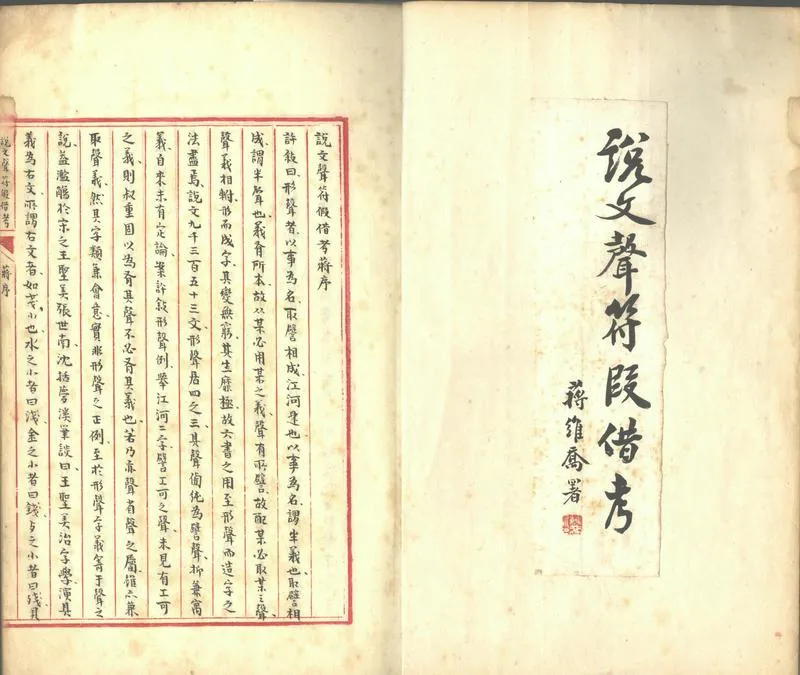 說文聲符叚借考
蔣維喬署
說文聲符假借考蔣序
許敍曰形聲者以事為名取譬相成江河是也以事為名謂半義也取譬相
成謂半聲也義有所本故从某必用某之義聲有所譬故配某必取某之聲
聲義相輔形而成字其變無窮其生靡極故六書之用至形聲而造字之
法盡焉說文九千三百五十三文形聲居四之三其聲僅純為譬聲抑兼寓
義自來未有定論案許敍形聲例舉江河二字譬工可之聲未見有工可
之義則叔重固以為有其聲不必有其義也若乃亦聲省聲之屬雖亦兼
取聲義然其字類兼會意實非形聲之正例至於形聲字義等于聲之
說益濫觴於宋之王聖美張世南沈括夢溪筆談曰王聖美治字學演其
義為右文所謂右文者如戔小也水之小者曰淺金之小者曰錢歹之小者曰殘貝
說文聲符假借考
蔣序